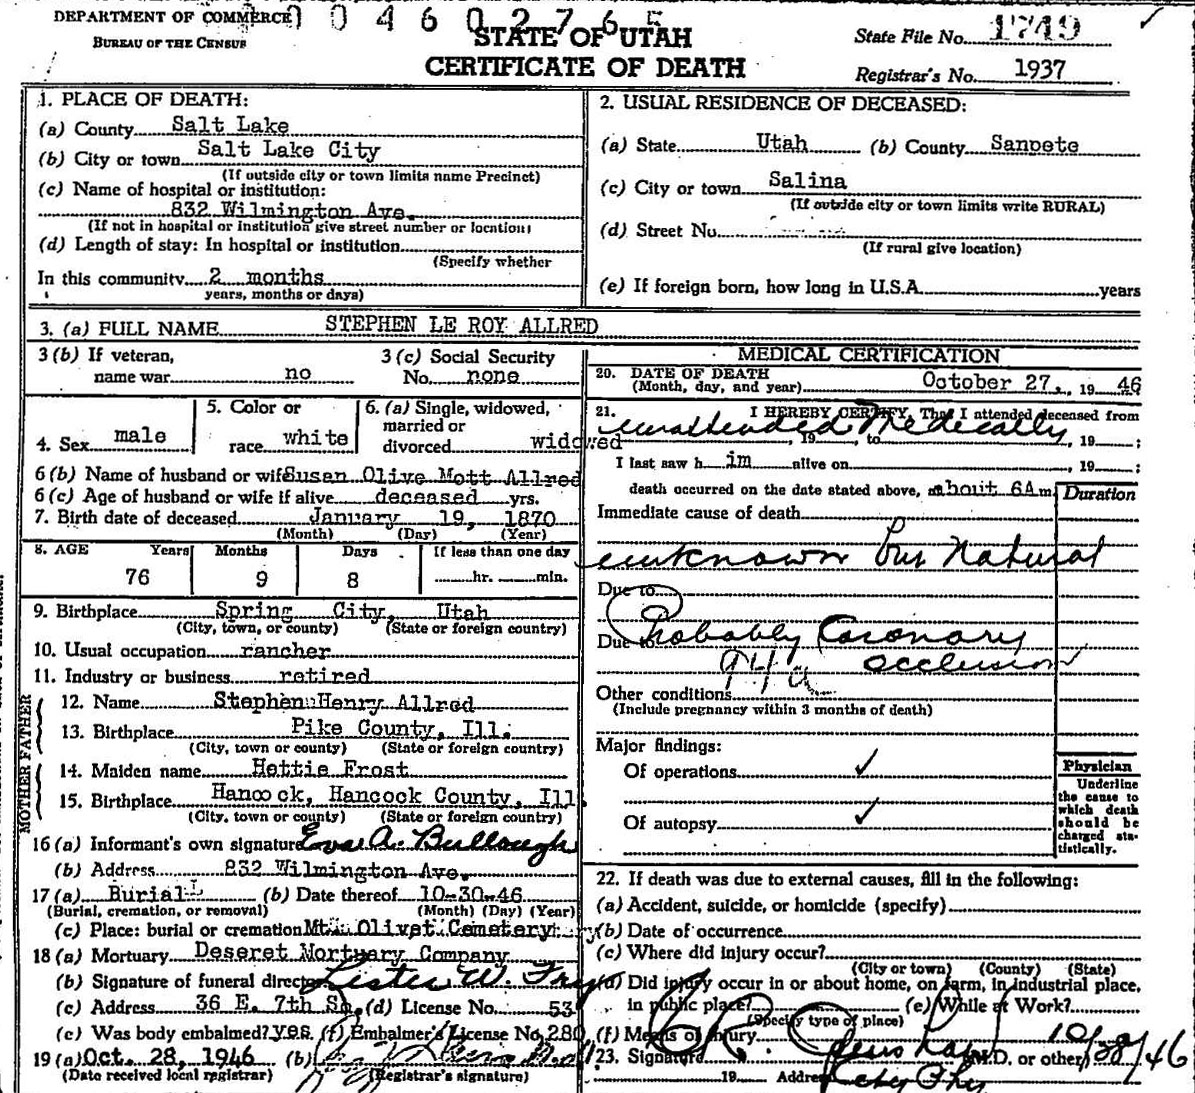 DEPARTMENT OF COMMERCE
BUREAU OF THE CENSUS
04602765
STATE OF UTAH
CERTIFICATE OF DEATH
State File No. 1749
Registrar's No. 1937
1. PLACE OF DEATH:
(a) County Salt Lake
(b) City or town Salt Lake City
(If outside city or town limits name Precinct)
(c) Name of hospital or institution:
832 Wilmington Ave.
(If not in hospital or institution give street number or location)
(d) Length of stay: In hospital or institution
(Specify whether
In this community 2 months
years, months or days)
2. USUAL RESIDENCE OF DECEASED:
(a) State Utah (b) County Sanpete
(c) City or town Salina
(If outside city or town limits write RURAL)
(d) Street No.
(If rural give location)
(e) If foreign born, how long in U.S.A. years
3. (a) FULL NAME STEPHEN LE ROY ALLRED
3 (b) If veteran, name war no
3 (c) Social Security No. none
4. Sex male
5. Color or race white
6. (a) Single, widowed, married or divorced widowed
6 (b) Name of husband or wife Susan Olive Mott Allred
6 (c) Age of husband or wife if alive deceased yrs.
7. Birth date of deceased January 19, 1870
(Month) (Day) (Year)
8. AGE Years Months Days If less than one day
76 9 8 hr. min.
9. Birthplace Spring City, Utah
(City, town, or county) (State or foreign country)
10. Usual occupation rancher
11. Industry or business retired
FATHER
12. Name Stephen Henry Allred
13. Birthplace Pike County, Ill.
(City, town or county) (State or foreign country)
MOTHER
14. Maiden name Hettie Frost
15. Birthplace Hancock, Hancock County, Ill.
(City, town or county) (State or foreign country)
16 (a) Informant's own signature Eva A. Bullough
(b) Address 832 Wilmington Ave.
17 (a) Burial (b) Date thereof 10-30-46
(Burial, cremation, or removal) (Month) (Day) (Year)
(c) Place: burial or cremation Mt. Olivet Cemetery
18 (a) Mortuary Deseret Mortuary Company
(b) Signature of funeral director Lester W. Fry
(c) Address 36 E. 7th So. (d) License No. 53
(e) Was body embalmed? yes (f) Embalmer's License No. 280
19 (a) Oct. 28, 1946 (b)
(Date received local registrar) (Registrar's signature)
MEDICAL CERTIFICATION
20. DATE OF DEATH
(Month, day, and year) October 27, 19 46
21. I HEREBY CERTIFY, That I attended deceased from
unattended Medically, 19 , to , 19 ;
I last saw h im alive on , 19 ;
death occurred on the date stated above, about 6A m.
Duration
Immediate cause of death
unknown but Natural
Due to
Due to Probably Coronary
94a occlusion
Other conditions
(Include pregnancy within 3 months of death)
Major findings:
Of operations ✓
Of autopsy ✓
Physician
Underline
the cause to
which death
should be
charged sta-
tistically.
22. If death was due to external causes, fill in the following:
(a) Accident, suicide, or homicide (specify)
(b) Date of occurrence
(c) Where did injury occur?
(City or town) (County) (State)
(d) Did injury occur in or about home, on farm, in industrial place,
in public place? (e) While at Work?
(Specify type of place)
(f) Means of injury
23. Signature (M.D. or other) 10/28/46
19 Address City Phy